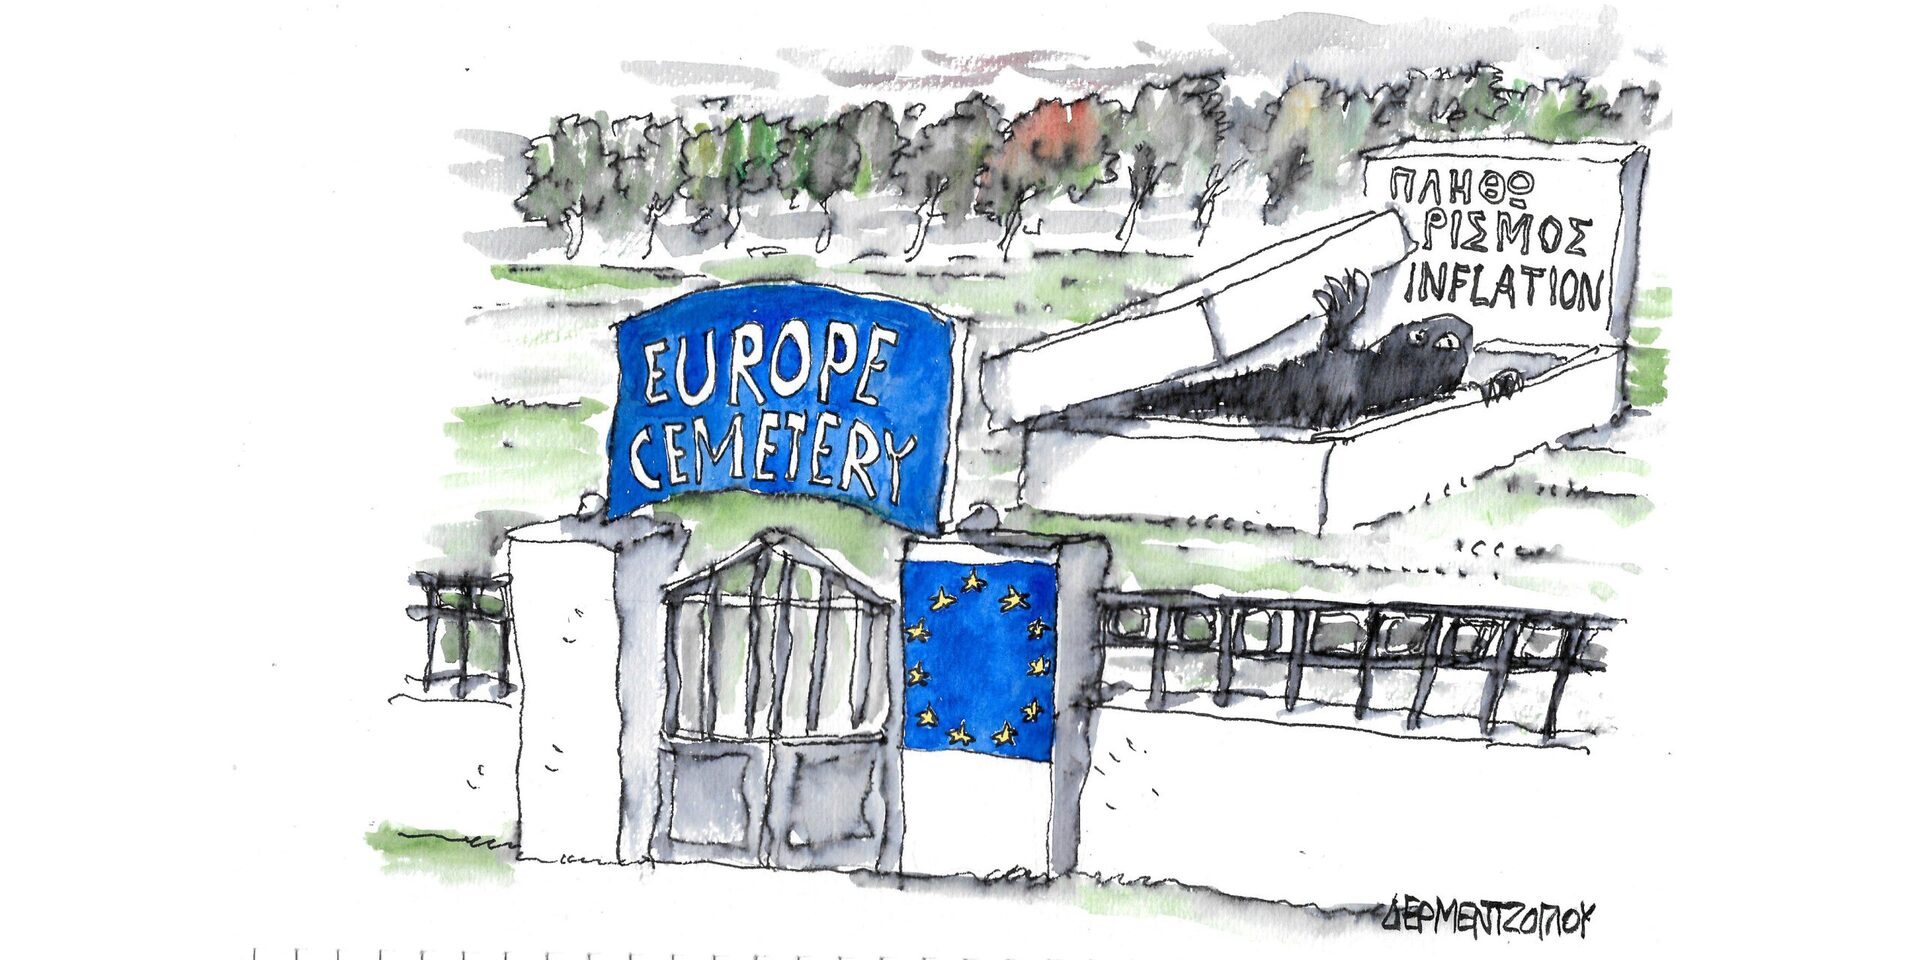 EUROPE
CEMETERY
ΠΛΗΘΩ
ΡΙΣΜΟΣ
INFLATION
ΔΕΡΜΕΝΤΖΟΓΛΟΥ